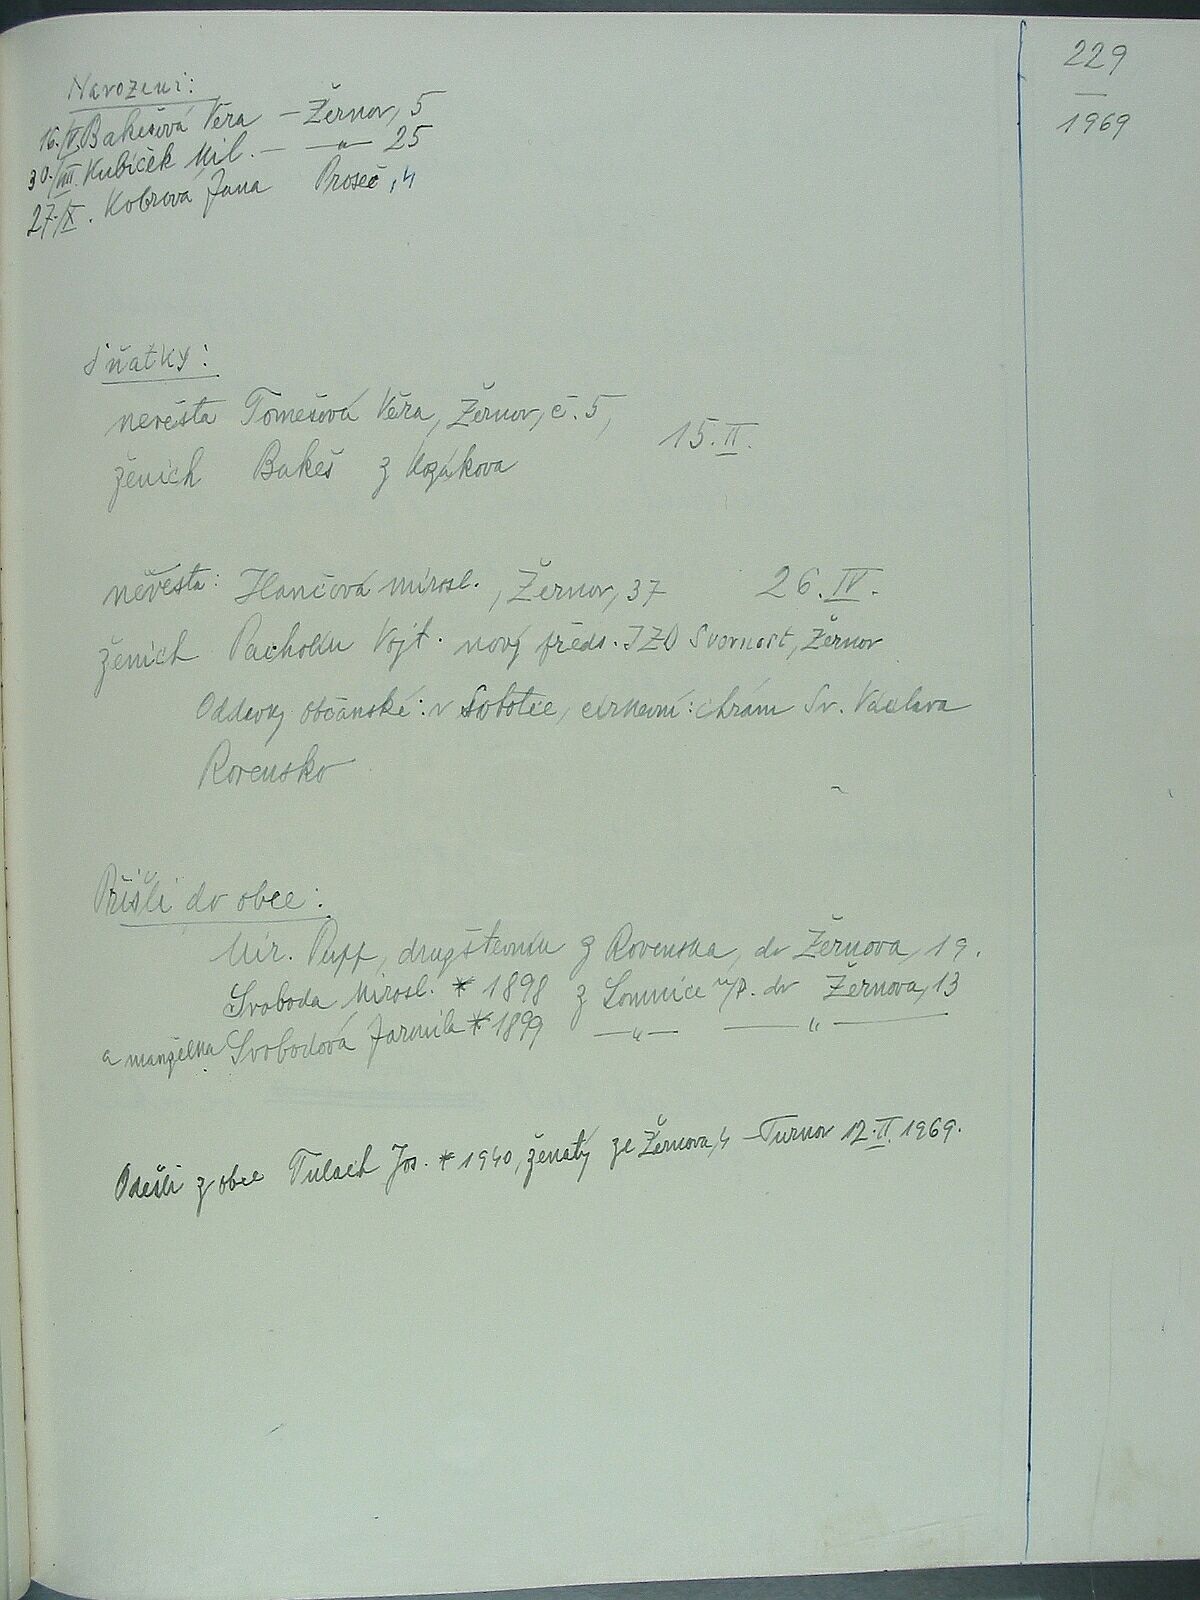 229
—
1969
Narození:
16./V. Bakešová Věra – Žernov, 5
30./VIII. Kubíček Mil. — —„— 25
27./X. Kobrová Jana Proseč, 4
Sňatky:
nevěsta Tomešová Věra, Žernov, č. 5,
15. II.
ženich Bakeš z Kozákova
nevěsta: Hančová Mirosl., Žernov, 37 26. IV.
ženich Pacholík Vojt. nový předs. JZD Svornost, Žernov
Oddavky občanské: v Sobotce, církevní: chrám Sv. Václava
Rovensko
Přišli do obce:
Mir. Pupp, družstevník z Rovenska, do Žernova, 19.
Svoboda Mirosl. * 1898 z Lomnice n/P. do Žernova, 13
a manželka Svobodová Jarmila * 1899 —„— —„—
Odešli z obce Tulach Jos. * 1940, ženatý ze Žernova, 4 – Turnov 12. II. 1969.